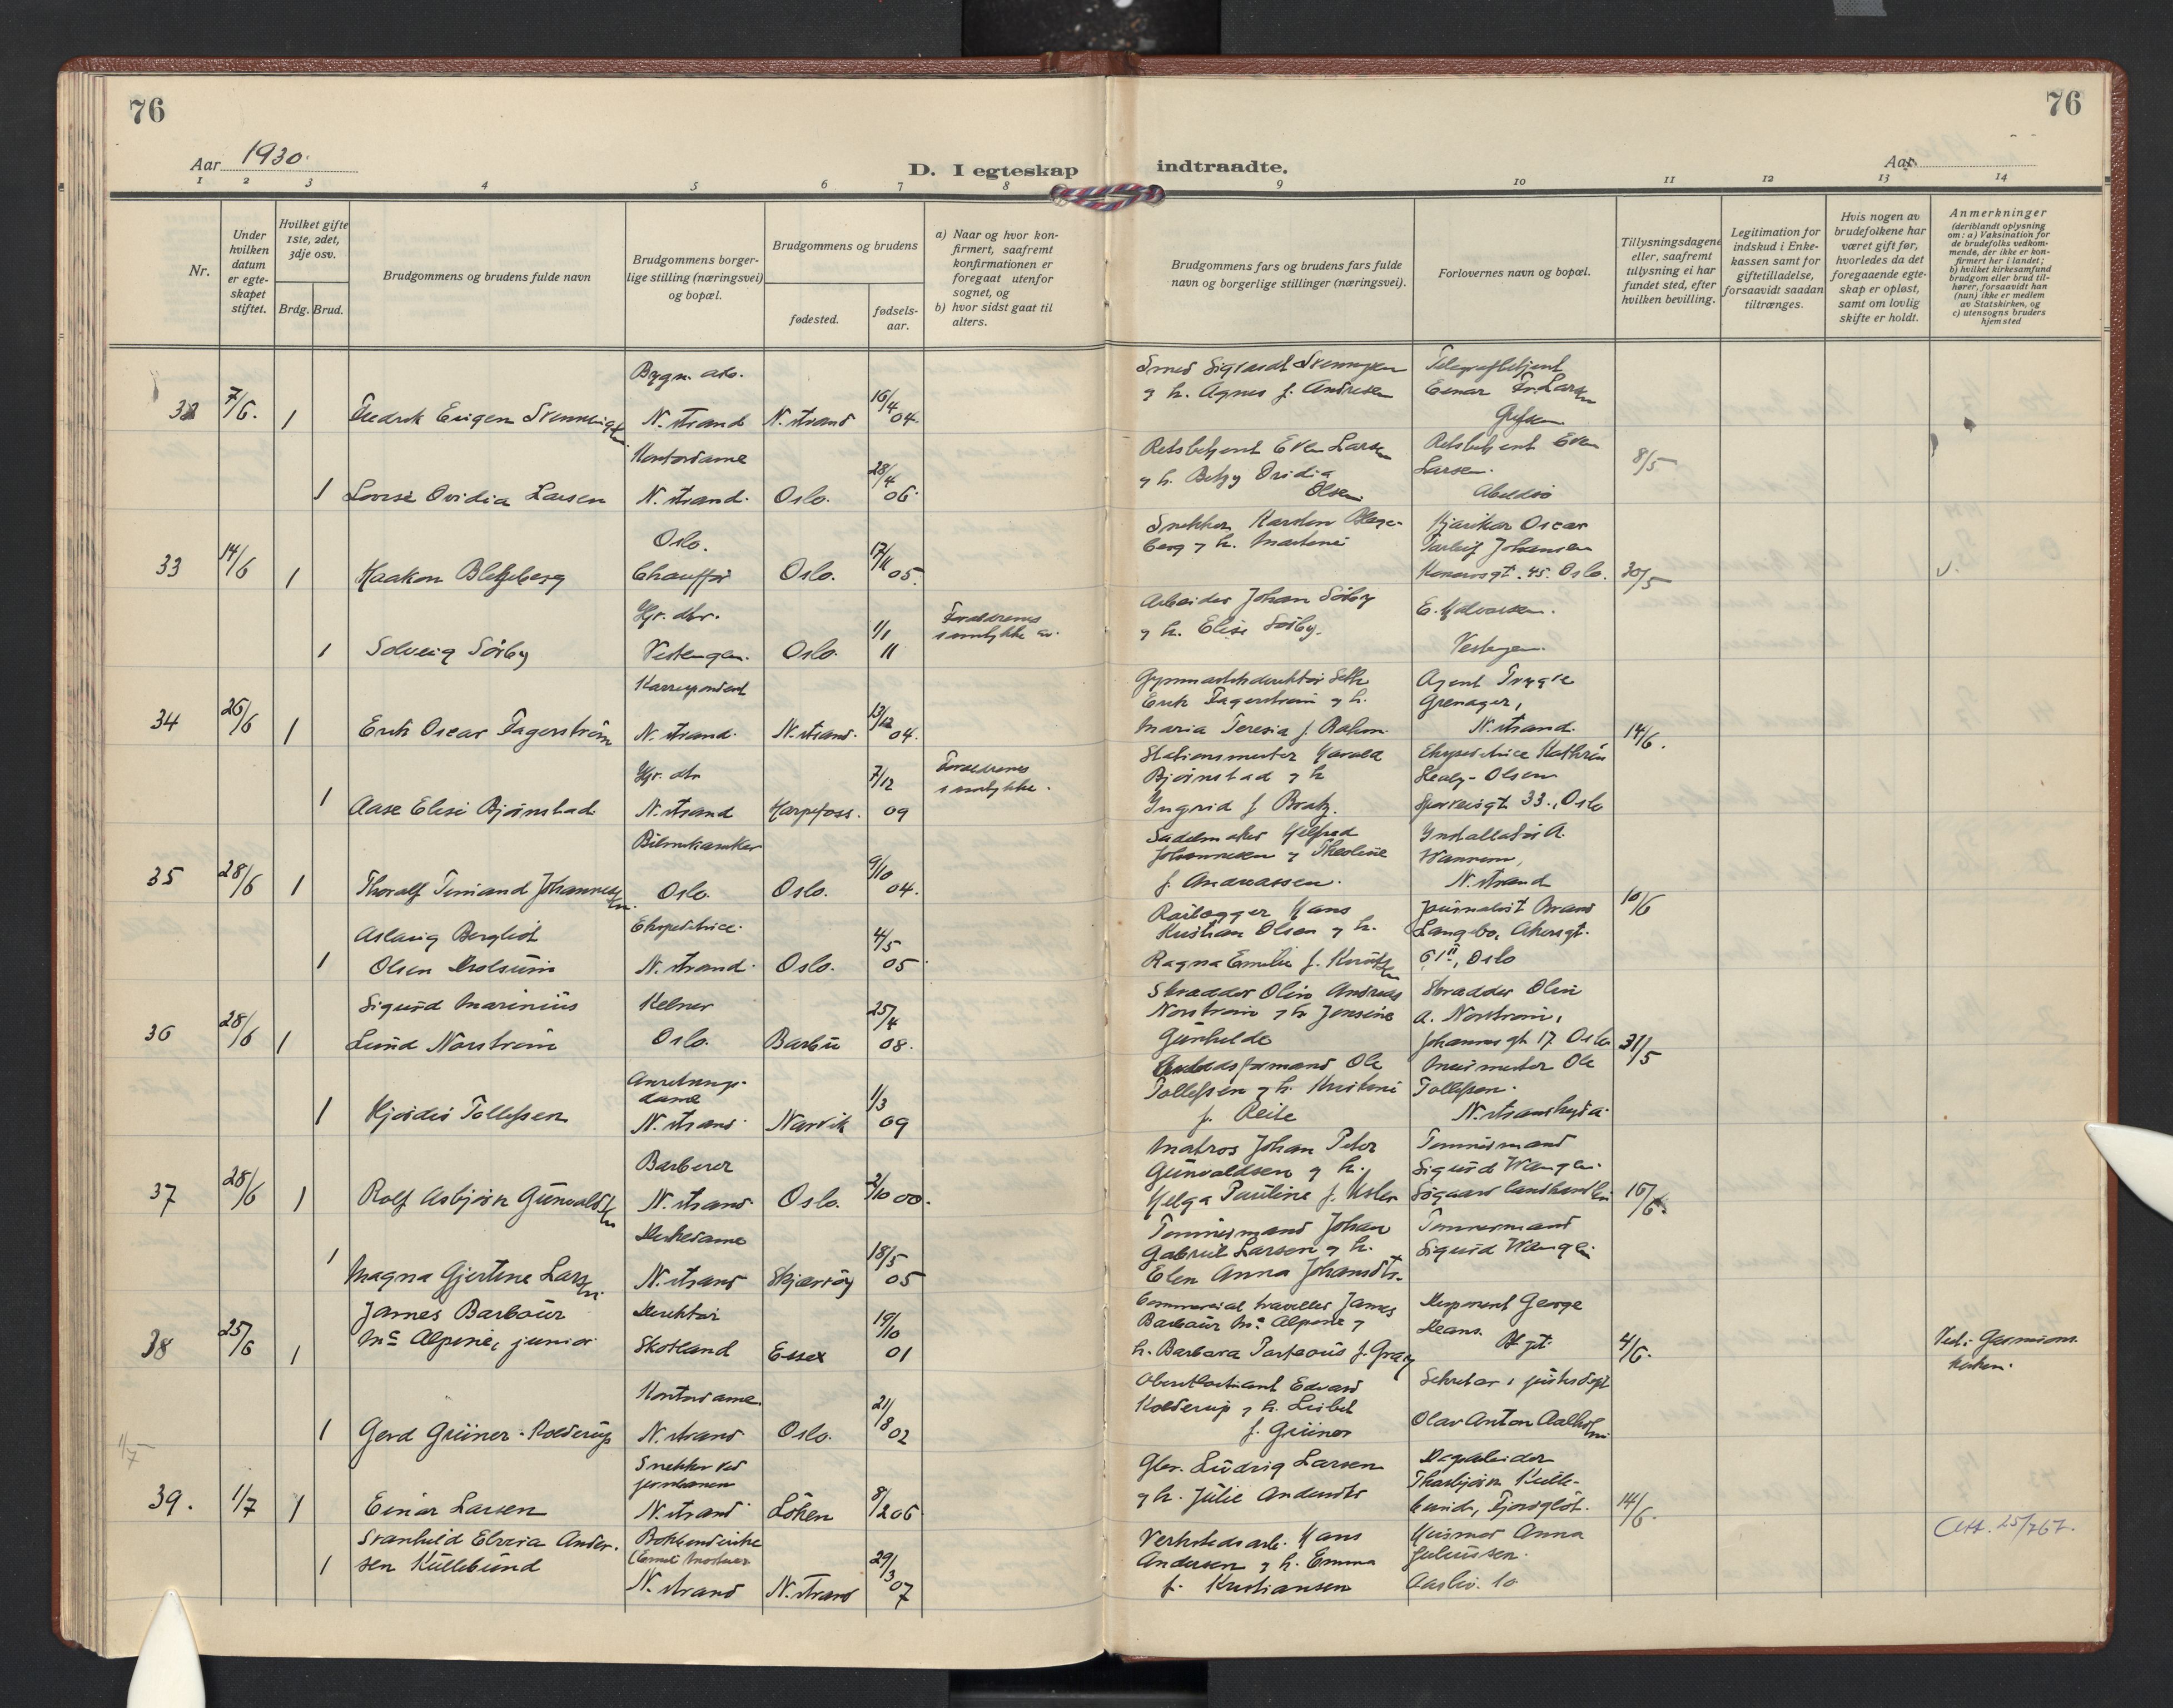 76
76
Aar 1930.
D. I egteskap
indtraadte.
Aar
1 2 3 4 5 6 7 8 9 10 11 12 13 14
Nr.
Under hvilken datum er egteskapet stiftet.
Hvilket gifte 1ste, 2det, 3dje osv.
Brdg. Brud.
Brudgommens og brudens fulde navn
Brudgommens borger-
lige stilling (næringsvei)
og bopæl.
Brudgommens og brudens
fødested.
fødsels-
aar.
a) Naar og hvor kon-
firmert, saafremt
konfirmationen er
foregaat utenfor
sognet, og
b) hvor sidst gaat til
alters.
Brudgommens fars og brudens fars fulde
navn og borgerlige stillinger (næringsvei).
Forlovernes navn og bopæl.
Tillysningsdagene
eller, saafremt
tillysning ei har
fundet sted, efter
hvilken bevilling.
Legitimation for
indskud i Enke-
kassen samt for
giftetilladelse,
forsaavidt saadan
tiltrænges.
Hvis nogen av
brudefolkene har
været gift før,
hvorledes da det
foregaaende egte-
skap er opløst,
samt om lovlig
skifte er holdt.
Anmerkninger
(deriblandt oplysning
om: a) Vaksination for
de brudefolks vedkom-
mende, der ikke er kon-
firmert her i landet;
b) hvilket kirkesamfund
brudgom eller brud til-
hører, forsaavidt han
(hun) ikke er medlem
av Statskirken, og
c) utensogns bruders
hjemsted
32 7/6. 1 Fredrik Eugen Svenningsen
Bygn. arb.
N. strand N. strand 16/4 04.
Smed Sigvardt Svenningsen
og h. Agnes f. Andresen
Telegrafbetjent
Einar Fr. Larsen
Grefsen
1 Lovise Ovidia Larsen
Kontordame
N. strand. Oslo. 28/4 06.
Retsbetjent Even Larsen
og h. Betzy Ovidia
Olsen
Retsbetjent Even
Larsen.
Abildsø
8/5
33 14/6 1 Haakon Blegeberg
Oslo.
Chauffør Oslo. 17/11 05.
Snekker Karsten Blege-
berg og h. Martine
Oscar
Johansen
45. Oslo.
30/5
v.
1 Solveig Sörby
Hjv. dtr.
Vestengen. Oslo. 1/1 11
Forældrenes
samtykke
Arbeider Johan Sörby
og h. Elise Sörby.
E. Halvorsen.
Vestengen.
34 26/6 1 Erik Oscar Fagerström
Korrespondent
N. strand. N. strand. 13/12 04.
Gymnastikdirektör Seth
Erik Fagerström og h.
Maria Teresia f.
Agent Trygve
Grenager,
N. strand.
14/6.
1 Aase Elise Bjørnstad
Hjv. dtr
N. strand Harpefoss. 7/12 09
Forældrenes
samtykke.
Stationsmester Harald
Bjørnstad og h
Ingrid f Bratz.
Ekspeditrice Kathrine
Sealy-Olsen
Sporveisgt. 33., Oslo
35 28/6 1 Thoralf Timand Johannessen.
Bilmekaniker
Oslo. Oslo. 9/10 04.
Sadelmaker Helfred
Johannesen og Theoline
f. Andreassen.
Installatör A.
N. strand
10/6
1 Aslaug Bergliot
Olsen
Ekspeditrice.
N. strand. Oslo. 4/5 05
Rörlegger Hans
Kristian Olsen og h.
Ragna Emilie f. Knudsen
Journalist Brand
Langebo, Akersgt.
61 II, Oslo
36 28/6 1 Sigurd Marinius
Lund Norström
Kelner
Oslo. Barbu 25/4 08.
Skrædder Olin Andreas
Norström og h Jensine
Gunhilde
Skrædder Olin
A. Norström,
Johannesgt 17 Oslo
31/5
1 Hjördis Tollefsen
Anretnings-
dame
N. strand. Narvik 1/3 09
Arbeidsformand Ole
Tollefsen og h. Kristine
f.
Murmester Ole
Tollefsen.
37 28/6 1 Rolf Asbjörn Gunvaldsen
Barberer
N. strand Oslo. 2/10 00.
Matros Johan Peter
Gunvaldsen og h.
Helga Pauline f.
Tømmermand
Sigurd Wangen.
Søgaard landhandleri
16/6.
1 Magna Gjertine Larsen.
Diskedame
N. strand Skjærvöy 18/5 05
Tømmermand Johan
Gabriel Larsen og h.
Elen Anna Johansdtr.
Tømmermand
Sigurd Wangen
38 25/6 1 James Barbour
Mc Alpine, junior
Direktør
Skotland Essex 19/10 01
Commercial traveller James
Barbour Mc Alpine og
h. Barbara Parteous f. Gray
Disponent George
Deans.
4/6.
1 Gerd Grüner-Kolderup
Kontordame.
N. strand Oslo. 21/8 02
Oberstløitnant Edvard
Kolderup og h. Lisbet
f. Grüner
Sekretær i justisdept
Olav Anton Aalholm
1/7
39. 1/7 1 Einar Larsen
Snekker ved
jernbanen
N. strand Löken 8/2 06
Gbr. Ludvig Larsen
og h. Julie Andersdtr
Thorbjörn Kulle-
bund, Fjordgløt.
14/6.
Att. 25/7 67.
1 Svanhild Elvira Ander-
sen Küllebund
N. strand N. strand 29/3 07
Verkstedsarb. Hans
Andersen og h. Emma
f. Kristiansen
Husmor Anna
Juliussen.
Aasliv. 10